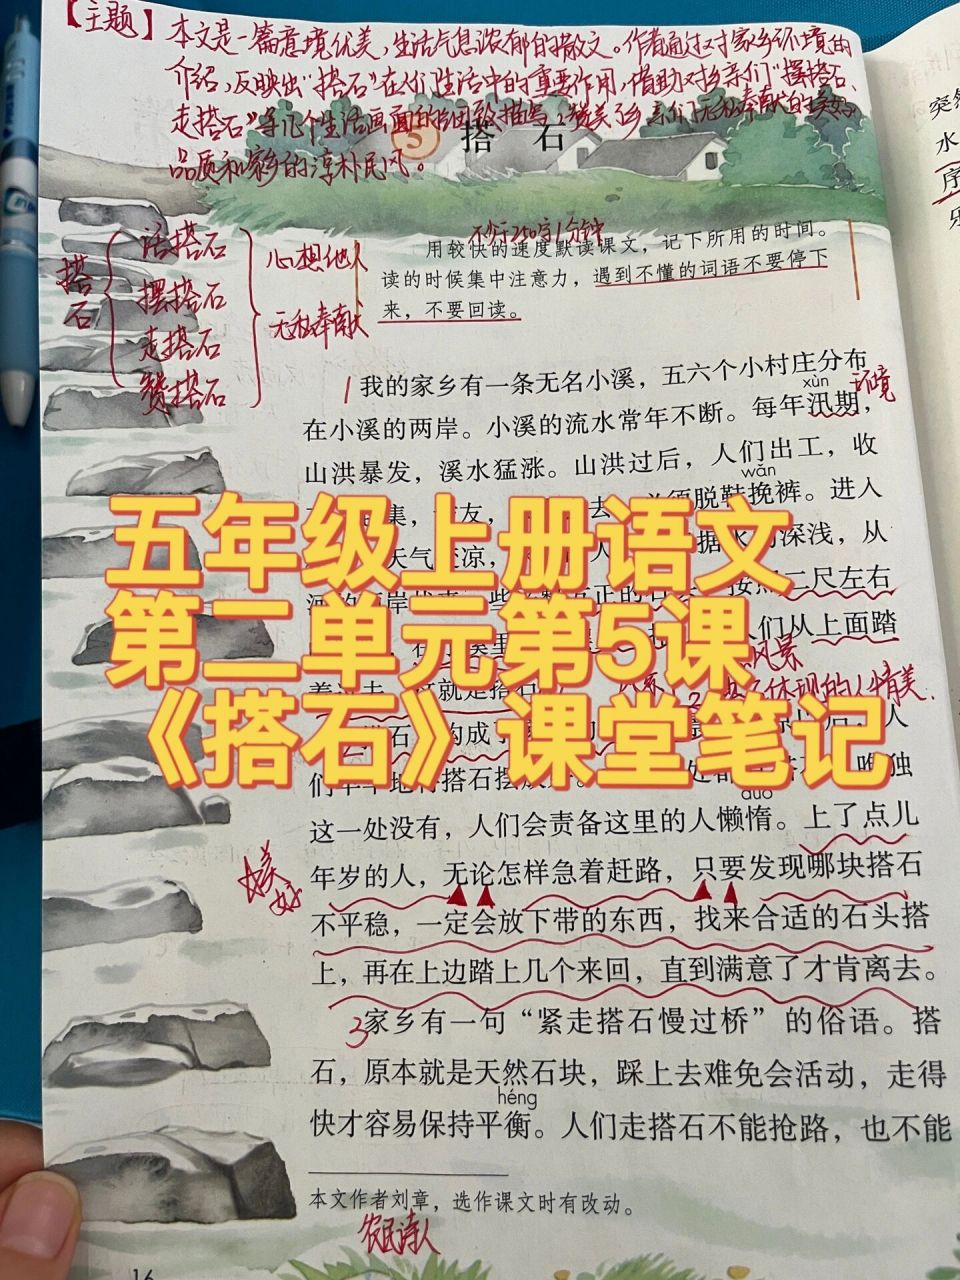 【主题】本文是一篇意境优美，生活气息浓郁的散文。作者通过对家乡环境的
介绍，反映出“搭石”在人们生活中的重要作用，借助对乡亲们“摆搭石、
走搭石”等几个生活画面的描写，赞美了乡亲们无私奉献的美好
品质和家乡的淳朴民风。
5 搭石
搭石
话搭石
摆搭石
走搭石
赞搭石
心想他人
无私奉献
用较快的速度默读课文，记下所用的时间。
读的时候集中注意力，遇到不懂的词语不要停下
来，不要回读。
1 我的家乡有一条无名小溪，五六个小村庄分布
xùn
环境
在小溪的两岸。小溪的流水常年不断。每年汛期，
山洪暴发，溪水猛涨。山洪过后，人们出工，收
wǎn
集，友，去，必须脱鞋挽裤。进入
天气变凉，人据水的深浅，从
二尺左右
人们从上面踏
风景
体现的人情美.
五年级上册语文
第二单元第5课
《搭石》课堂笔记
石构成了
人
们地搭石处唯独
duò
这一处没有，人们会责备这里的人懒惰。上了点儿
年岁的人，无论怎样急着赶路，只要发现哪块搭石
美好
不平稳，一定会放下带的东西，找来合适的石头搭
上，再在上边踏上几个来回，直到满意了才肯离去。
3 家乡有一句“紧走搭石慢过桥”的俗语。搭
石，原本就是天然石块，踩上去难免会活动，走得
héng
快才容易保持平衡。人们走搭石不能抢路，也不能
本文作者刘章，选作课文时有改动。
农民诗人
16
突然
水
序